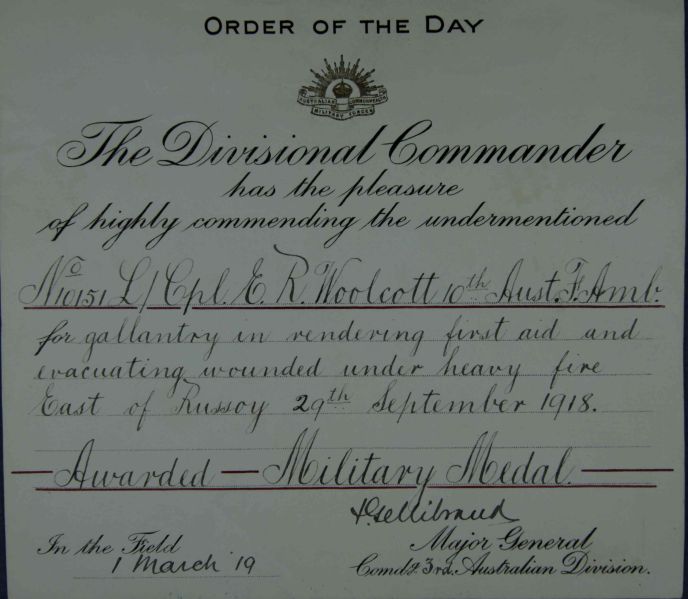 ORDER OF THE DAY
AUSTRALIAN COMMONWEALTH
MILITARY FORCES
The Divisional Commander
has the pleasure
of highly commending the undermentioned
No 10151 L/Cpl. E. R. Woolcott 10th Aust. F. Amb.
for gallantry in rendering first aid and
evacuating wounded under heavy fire
East of Russoy 29th September 1918.
Awarded — Military Medal.
J Gellibrand
In the Field
1 March 19
Major General
Comdg 3rd. Australian Division.